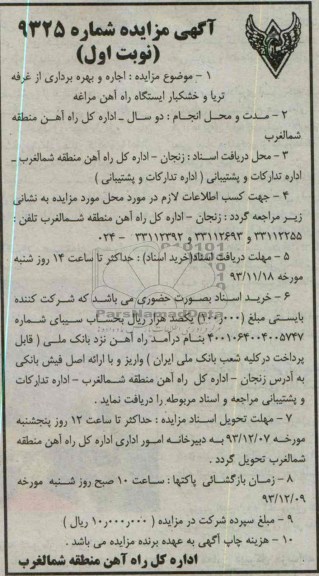 آگهی مزایده شماره ۹۳۲۵
(نوبت اول)
۱ - موضوع مزایده : اجاره و بهره برداری از غرفه
تریا و خشکبار ایستگاه راه آهن مراغه
۲ - مدت و محل انجام : دو سال - اداره کل راه آهن منطقه
شمالغرب
۳ - محل دریافت اسناد : زنجان - اداره کل راه آهن منطقه شمالغرب -
اداره تدارکات و پشتیبانی ( اداره تدارکات و پشتیبانی )
۴ - جهت کسب اطلاعات لازم در مورد محل مورد مزایده به نشانی
زیر مراجعه گردد : زنجان - اداره کل راه آهن منطقه شمالغرب تلفن :
۳۳۱۱۲۲۵۵ و ۳۳۱۱۲۶۹۳ و ۳۳۱۱۲۳۹۲ - ۰۲۴
۵ - مهلت دریافت اسناد(خرید اسناد) : حداکثر تا ساعت ۱۴ روز شنبه
مورخه ۹۳/۱۱/۱۸
۶ - خرید اسناد بصورت حضوری می باشد که شرکت کننده
بایستی مبلغ (۱۰۰٫۰۰۰) یکصد هزار ریال بحساب سیبای شماره
۴۰۰۱۰۶۴۰۰۴۰۰۵۷۴۷ بنام درآمد راه آهن نزد بانک ملی ( قابل
پرداخت درکلیه شعب بانک ملی ایران ) واریز و با ارائه اصل فیش بانکی
به آدرس زنجان - اداره کل راه آهن منطقه شمالغرب - اداره تدارکات
و پشتیبانی مراجعه و اسناد مربوطه را دریافت نماید .
۷ - مهلت تحویل اسناد مزایده : حداکثر تا ساعت ۱۲ روز پنجشنبه
مورخه ۹۳/۱۲/۰۷ به دبیرخانه امور اداری اداره کل راه آهن منطقه
شمالغرب تحویل گردد .
۸ - زمان بازگشائی پاکتها : ساعت ۱۰ صبح روز شنبه مورخه
۹۳/۱۲/۰۹
۹ - مبلغ سپرده شرکت در مزایده ( ۱۰٫۰۰۰٫۰۰۰ ریال )
۱۰ - هزینه چاپ آگهی به عهده برنده مزایده می باشد .
اداره کل راه آهن منطقه شمالغرب